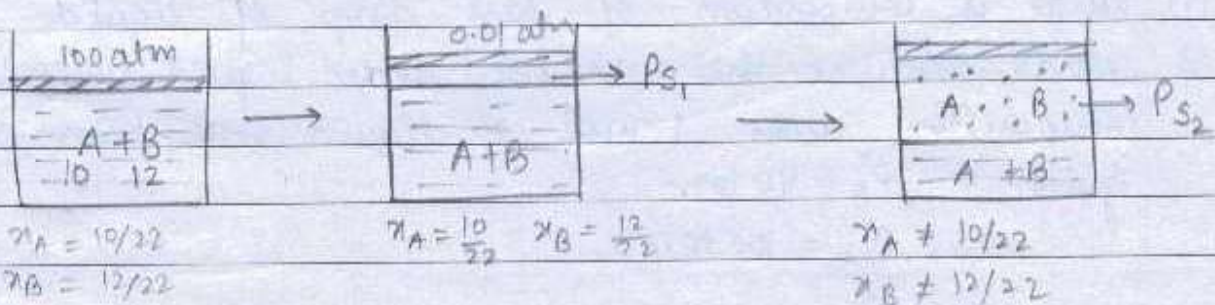 100 atm
A + B
10 12
x_A = 10/22
x_B = 12/22
0.01 atm
→ P_S₁
A + B
x_A = 10/22 x_B = 12/22
A B → P_S₂
A + B
x_A ≠ 10/22
x_B ≠ 12/22